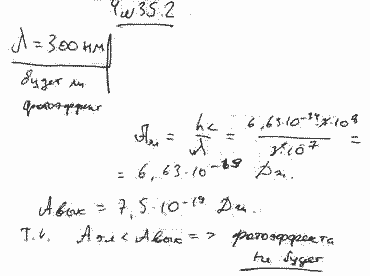 Чи 35.2
λ = 300 нм
будет ли
фотоэффект
Аэл = hc/λ = 6,63·10⁻³⁴·3·10⁸/3·10⁷ =
= 6,63·10⁻¹⁹ Дж.
Авых = 7,5·10⁻¹⁹ Дж.
Т.к. Аэл < Авых => фотоэффекта
не будет